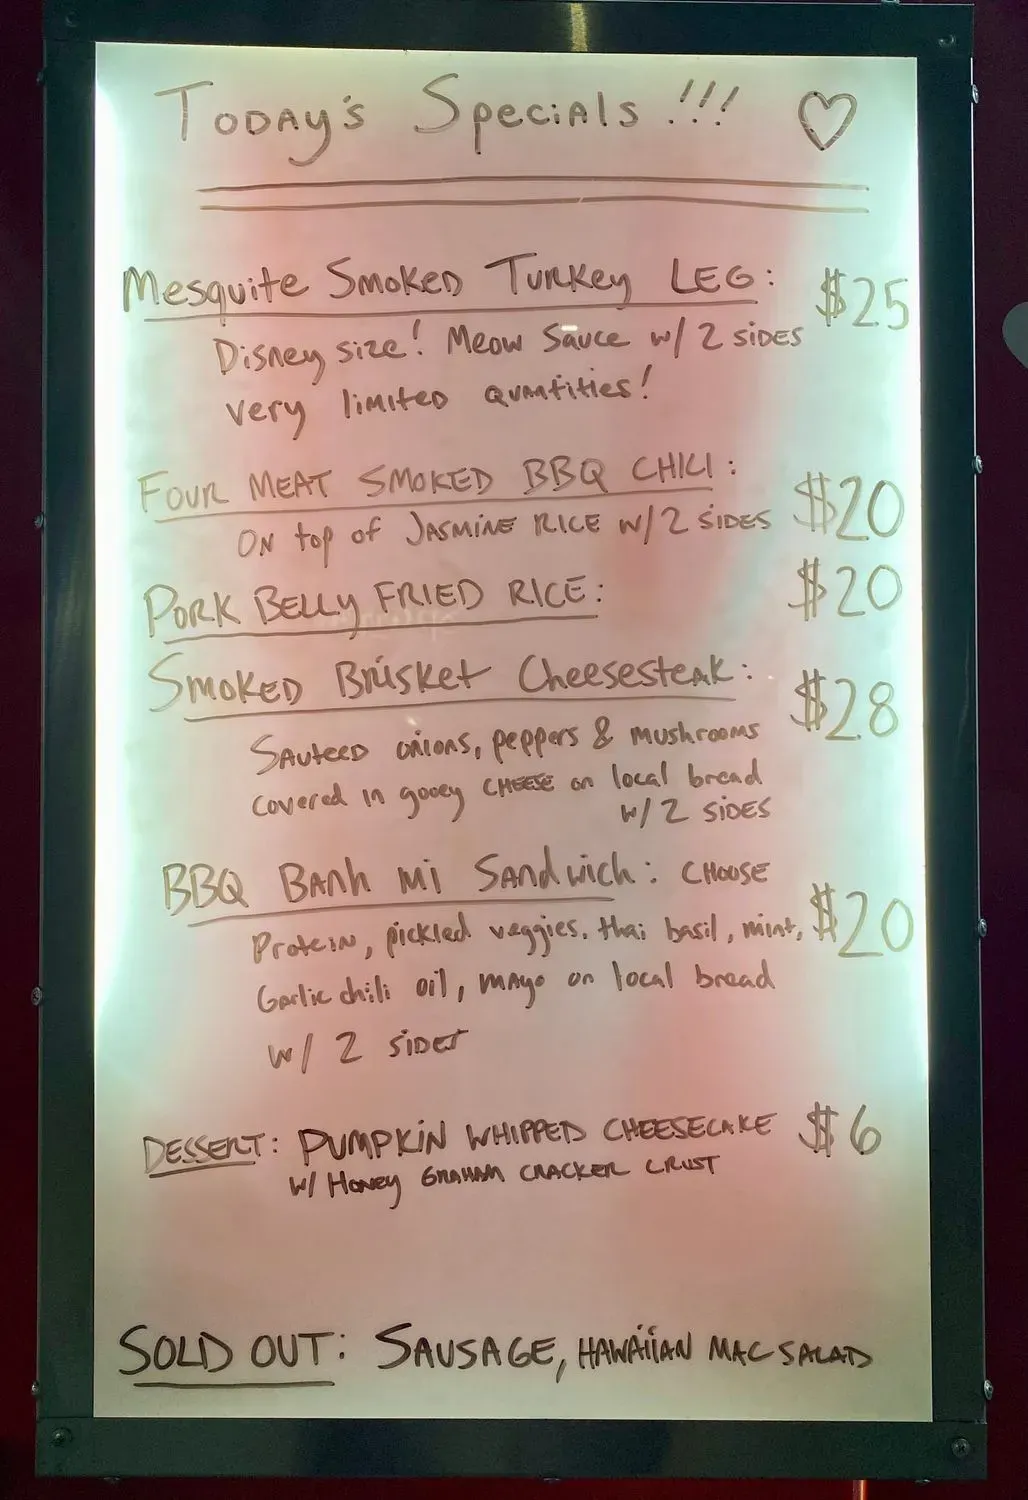 Today's Specials !!! ♡
Mesquite Smoked Turkey Leg: $25
Disney size! Meow Sauce w/ 2 sides
very limited quantities!
Four Meat Smoked BBQ Chili: $20
On top of Jasmine Rice w/ 2 sides
Pork Belly Fried Rice: $20
Smoked Brisket Cheesesteak: $28
Sauteed onions, peppers & mushrooms
covered in gooey cheese on local bread
w/ 2 sides
BBQ Banh Mi Sandwich: choose $20
Protein, pickled veggies, thai basil, mint,
Garlic chili oil, mayo on local bread
w/ 2 sides
Dessert: Pumpkin Whipped Cheesecake $6
w/ Honey Graham Cracker Crust
Sold Out: Sausage, Hawaiian Mac Salad